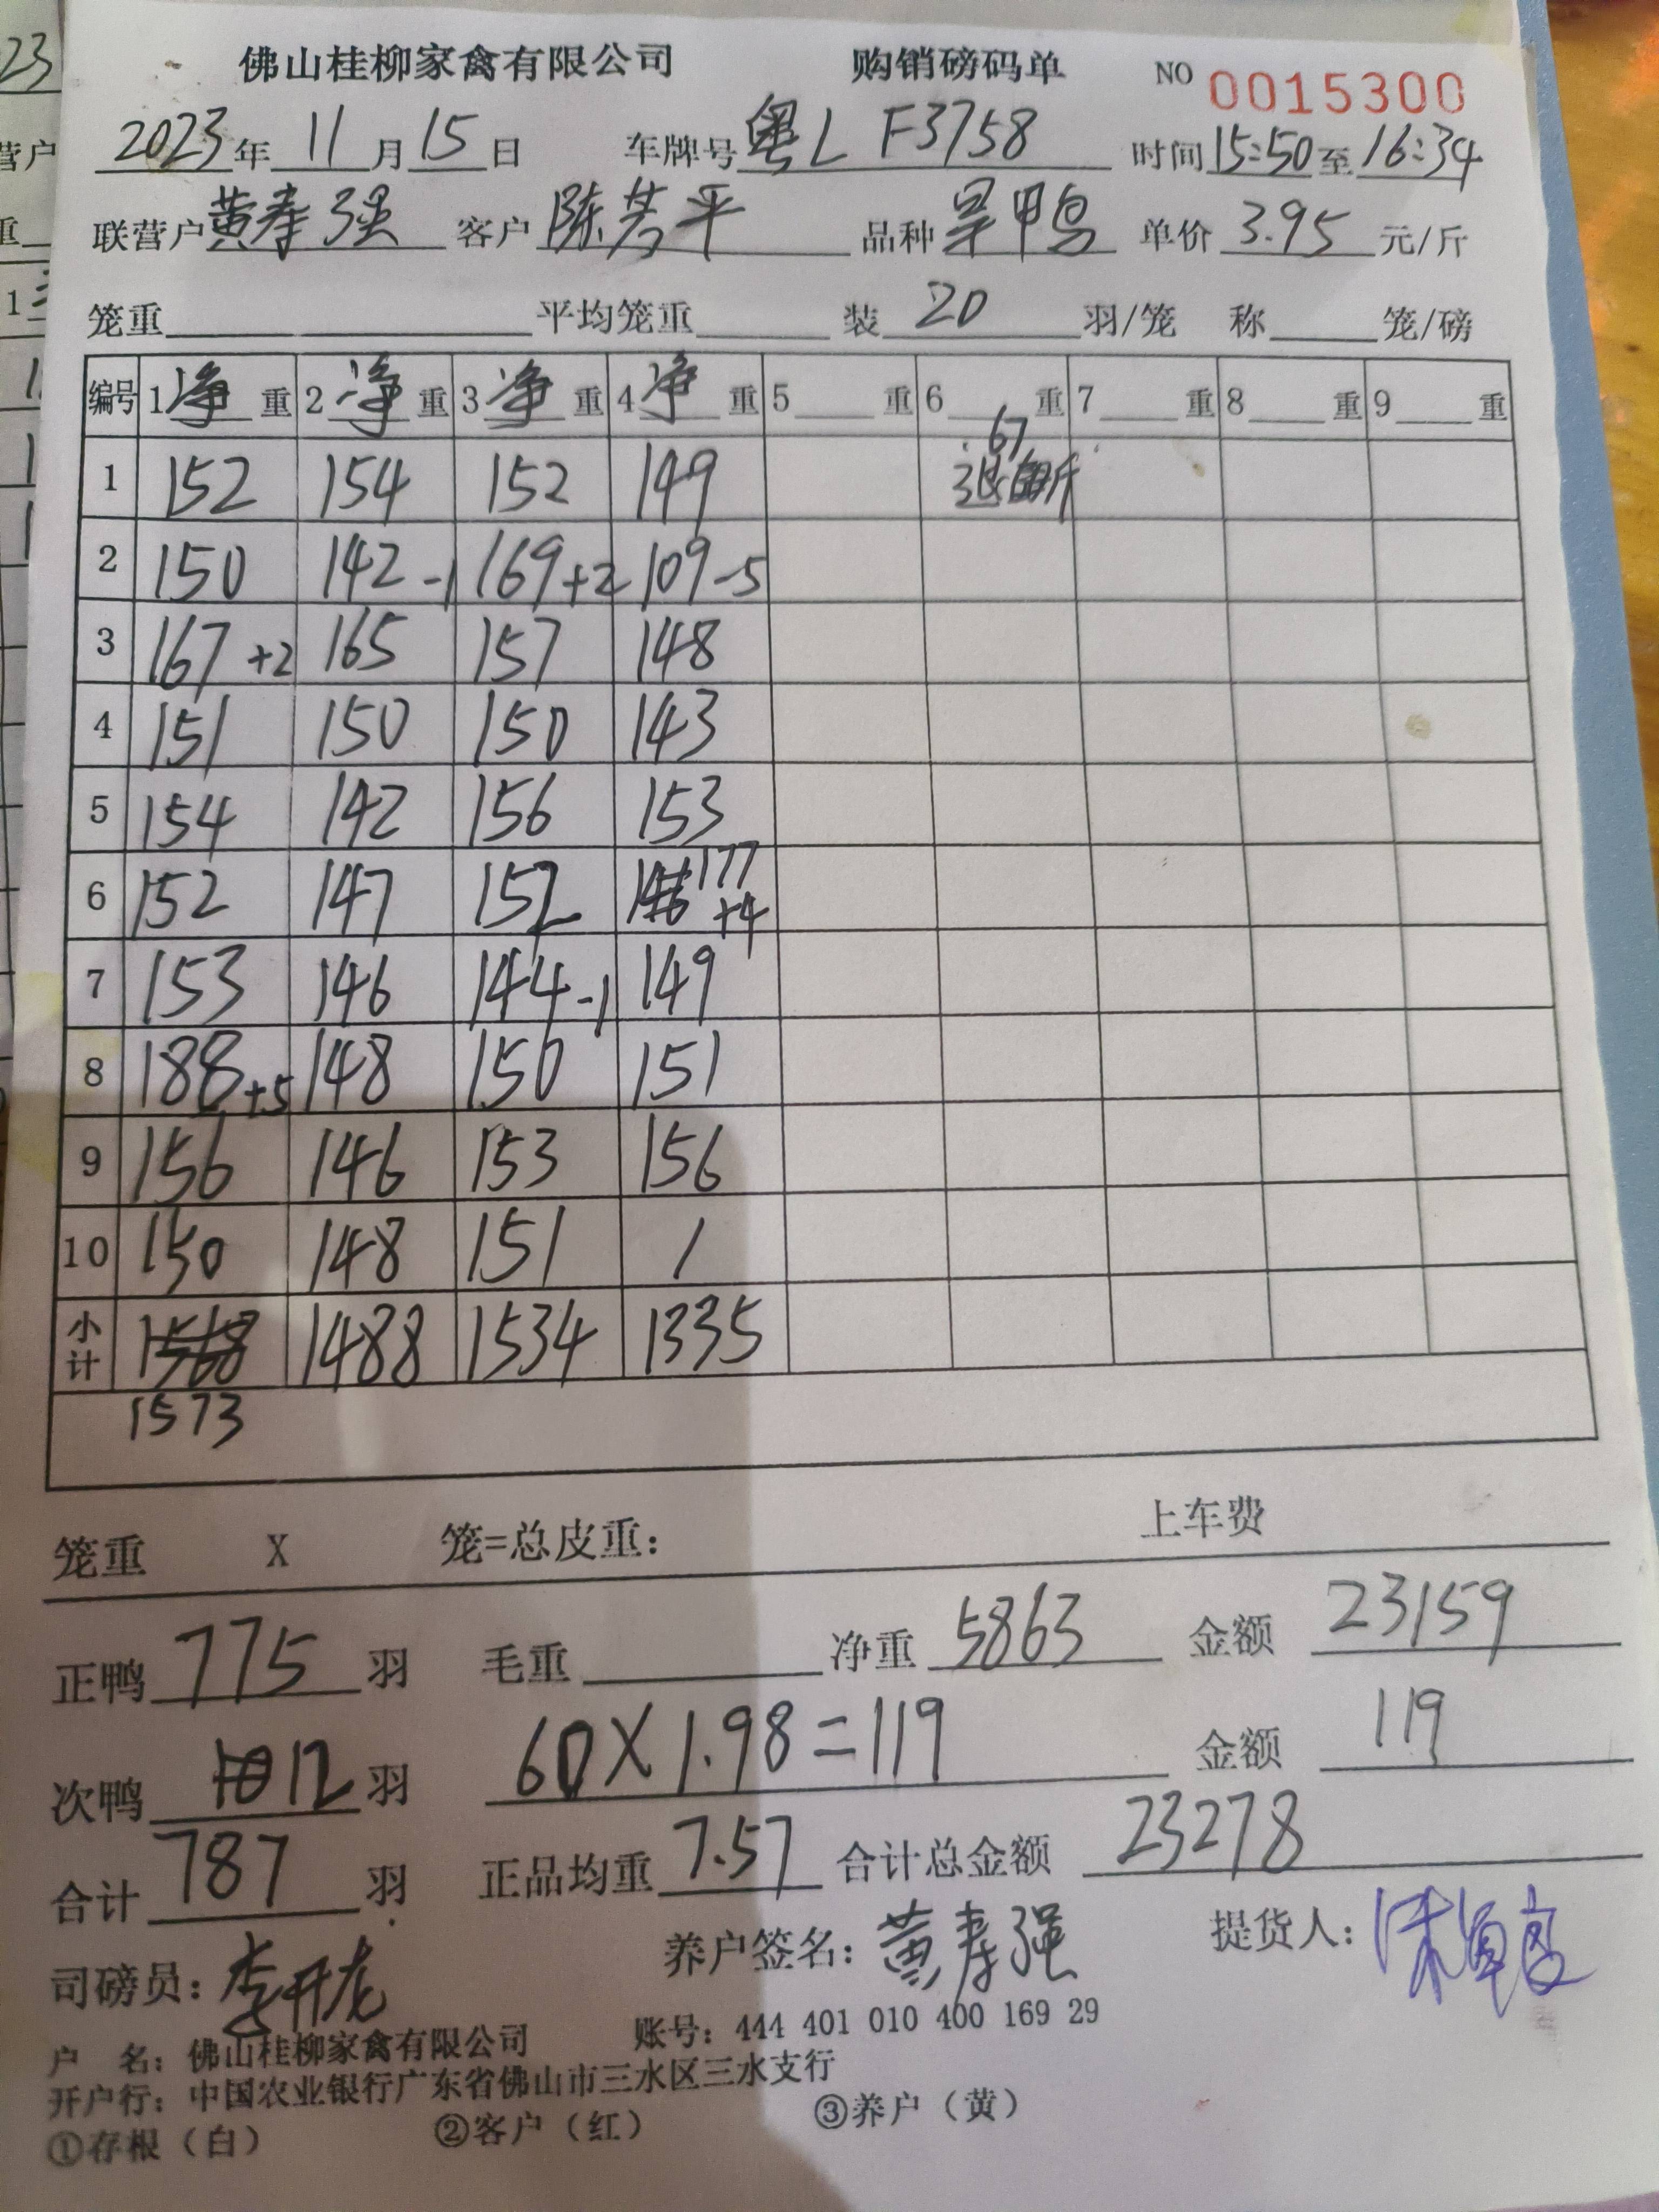 佛山桂柳家禽有限公司 购销磅码单 NO 0015300
2023年 11月 15日 车牌号 粤L F3758 时间 15:50 至 16:34
联营户 黄寿强 客户 陈芳平 品种 旱鸭 单价 3.95 元/斤
笼重 平均笼重 装 20 羽/笼 称 笼/磅
编号 1 净 重 2 净 重 3 净 重 4 净 重 5 重 6 重 7 重 8 重 9 重
67
1 152 154 152 149 退 斤
2 150 142-1 169+2 109-5
3 167+2 165 157 148
4 151 150 150 143
5 154 142 156 153
6 152 147 152 177+4
7 153 146 144-1 149
8 188+5 148 150 151
9 156 146 153 156
10 150 148 151 /
小计 1568 1488 1534 1335
1573
笼重 X 笼=总皮重: 上车费
正鸭 775 羽 毛重 净重 5863 金额 23159
次鸭 12 羽 60X1.98=119 金额 119
合计 787 羽 正品均重 7.57 合计总金额 23278
司磅员: 李开龙 养户签名: 黄寿强 提货人:
户 名: 佛山桂柳家禽有限公司 账号: 444 401 010 400 169 29
开户行: 中国农业银行广东省佛山市三水区三水支行
①存根(白) ②客户(红) ③养户(黄)